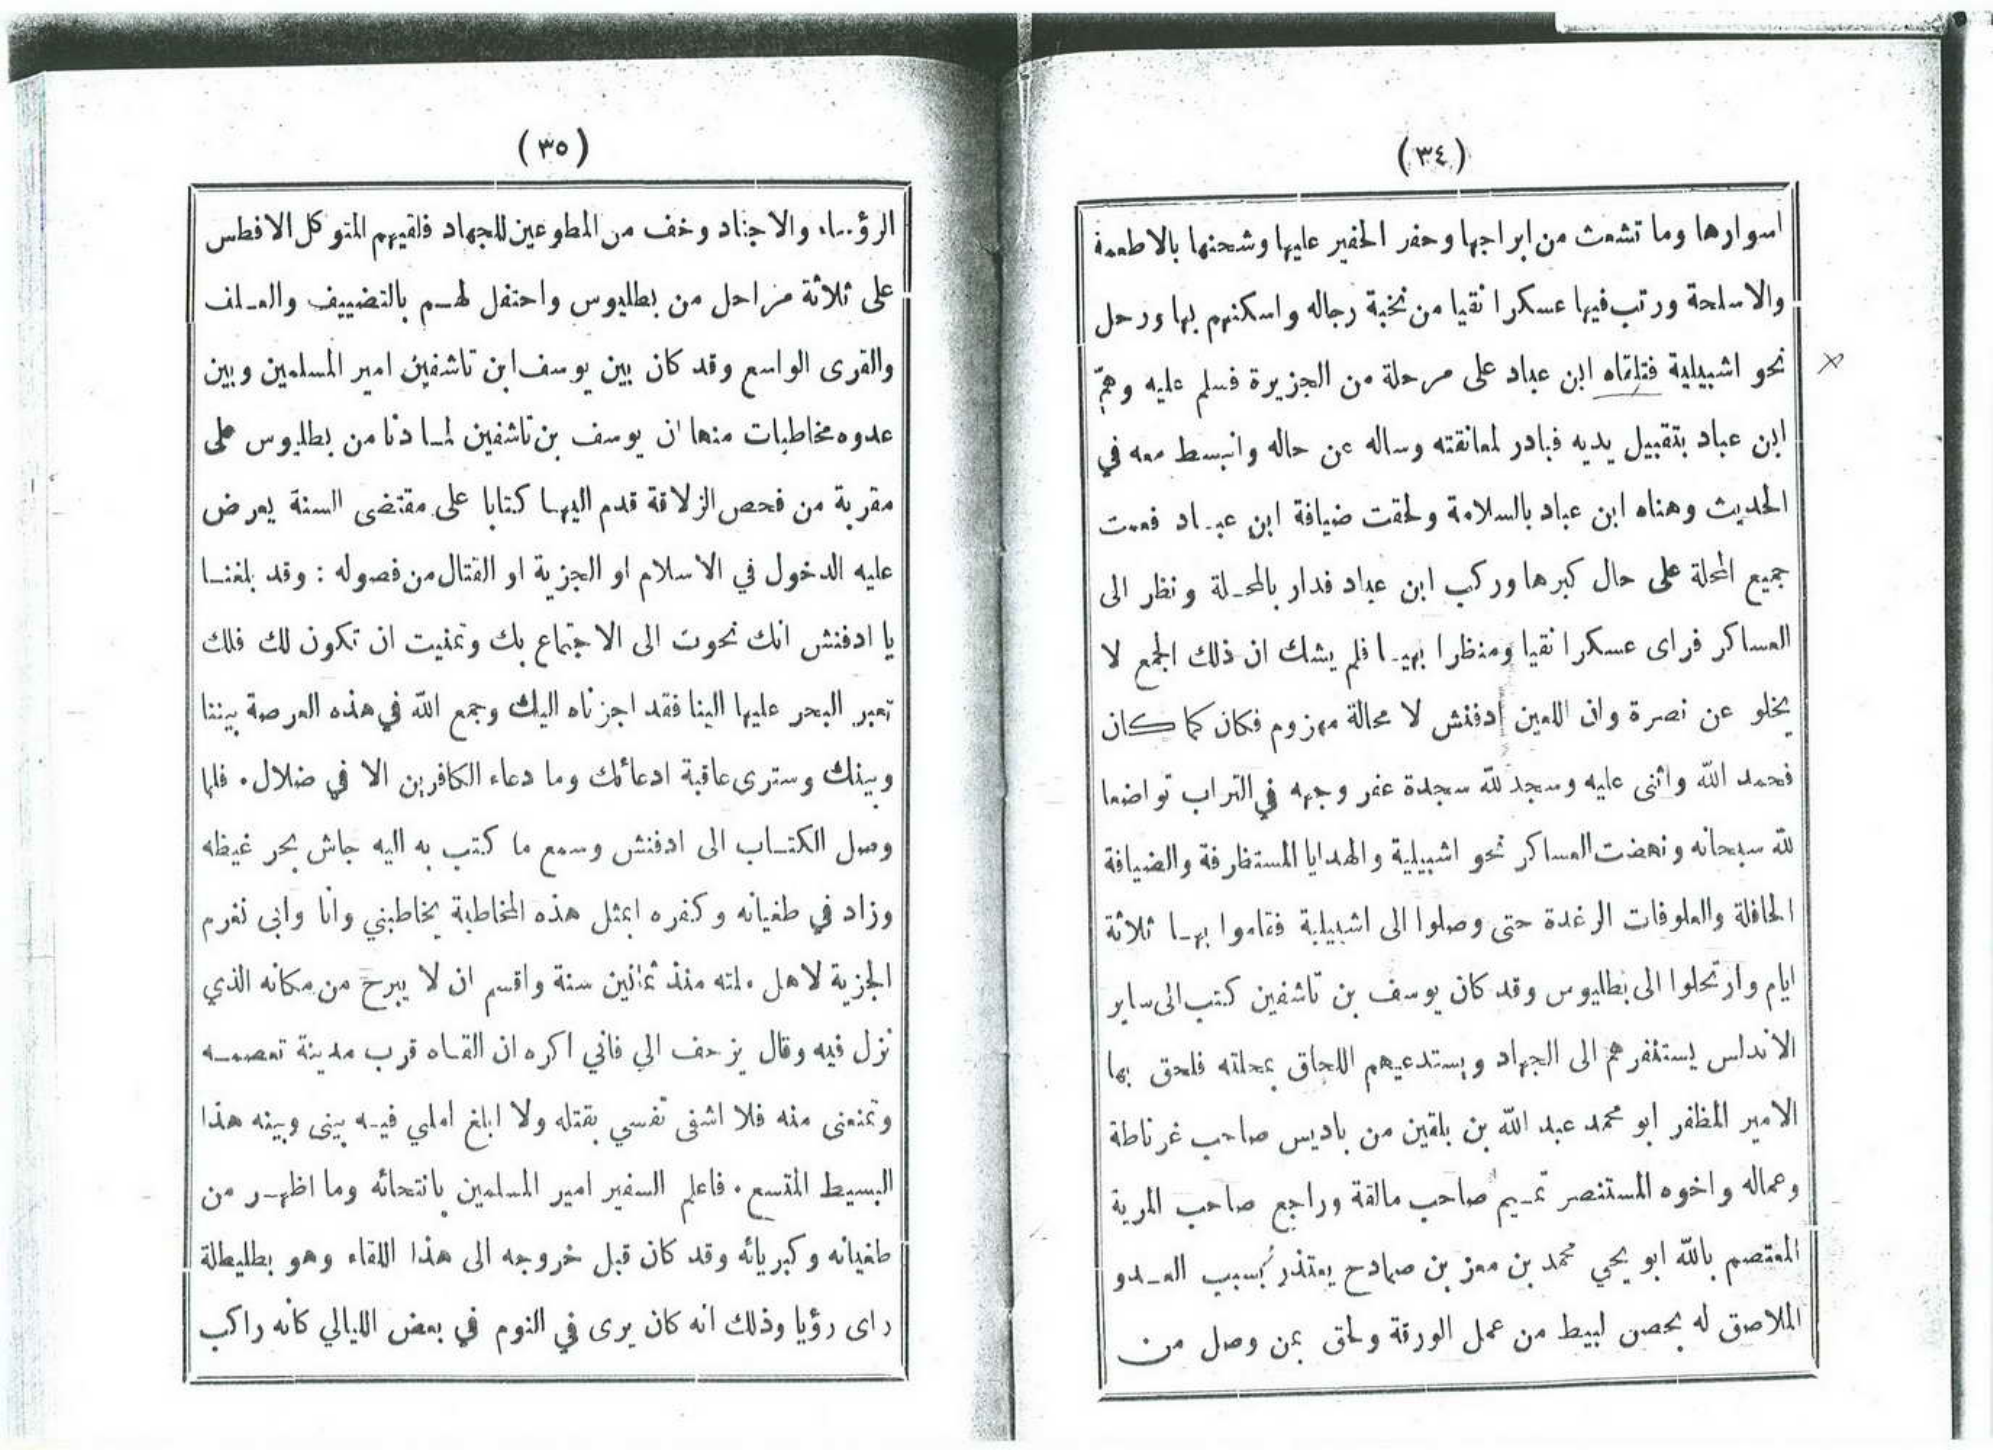 (٣٤)
اسوارها وما تشعث من ابراجها وحفر الحفير عليها وشحنها بالاطعمة
والاسلحة ورتب فيها عسكرا نقيا من نخبة رجاله واسكنهم بها ورحل
نحو اشبيلية فتلقاه ابن عباد على مرحلة من الجزيرة فسلم عليه وهمّ
ابن عباد بتقبيل يديه فبادر لمعانقته وساله عن حاله وانبسط معه في
الحديث وهناه ابن عباد بالسلامة ولحقت ضيافة ابن عباد فعمت
جميع المحلة على حال كبرها وركب ابن عباد فدار بالمحلة ونظر الى
العساكر فراى عسكرا نقيا ومنظرا بهيا فلم يشك ان ذلك الجمع لا
يخلو عن نصرة وان اللعين ادفنش لا محالة مهزوم فكان كما كان
فحمد الله واثنى عليه وسجد لله سجدة عفر وجهه في التراب تواضعا
لله سبحانه ونهضت العساكر نحو اشبيلية والهدايا المستظرفة والضيافة
الحافلة والعلوفات الرغدة حتى وصلوا الى اشبيلية فقاموا بها ثلاثة
ايام وارتحلوا الى بطليوس وقد كان يوسف بن تاشفين كتب الى ساير
الاندلس يستنفرهم الى الجهاد ويستدعيهم اللحاق بمحلته فلحق بها
الامير المظفر ابو محمد عبد الله بن بلقين من باديس صاحب غرناطة
وعماله واخوه المستنصر تميم صاحب مالقة وراجع صاحب المرية
المعتصم بالله ابو يحي محمد بن معز بن صمادح يعتذر بسبب العدو
الملاصق له بحصن لبيط من عمل الورقة ولحق بمن وصل من
(٣٥)
الرؤساء والاجناد وخف من المطوعين للجهاد فلقيهم المتوكل الافطس
على ثلاثة مراحل من بطليوس واحتفل لهم بالتضييف والعلف
والقرى الواسع وقد كان بين يوسف ابن تاشفين امير المسلمين وبين
عدوه مخاطبات منها ان يوسف بن تاشفين لما دنا من بطليوس على
مقربة من فحص الزلاقة قدم اليها كتابا على مقتضى السنة يعرض
عليه الدخول في الاسلام او الجزية او القتال من فصوله : وقد بلغنا
يا ادفنش انك نحوت الى الاجتماع بك وتمنيت ان تكون لك فلك
تعبر البحر عليها الينا فقد اجزناه اليك وجمع الله في هذه العرصة بيننا
وبينك وسترى عاقبة ادعائك وما دعاء الكافرين الا في ضلال . فلما
وصل الكتاب الى ادفنش وسمع ما كتب به اليه جاش بحر غيظه
وزاد في طغيانه وكفره ابمثل هذه المخاطبة يخاطبني وانا وابى نغرم
الجزية لاهل ملته منذ ثمانين سنة واقسم ان لا يبرح من مكانه الذي
نزل فيه وقال يزحف الي فاني اكره ان القاه قرب مدينة تعصمه
وتمنعنى منه فلا اشفى نفسي بقتله ولا ابلغ املي فيه بينى وبينه هذا
البسيط المتسع . فاعلم السفير امير المسلمين بانتحائه وما اظهر من
طغيانه وكبريائه وقد كان قبل خروجه الى هذا اللقاء وهو بطليطلة
راى رؤيا وذلك انه كان يرى في النوم في بعض الليالي كانه راكب